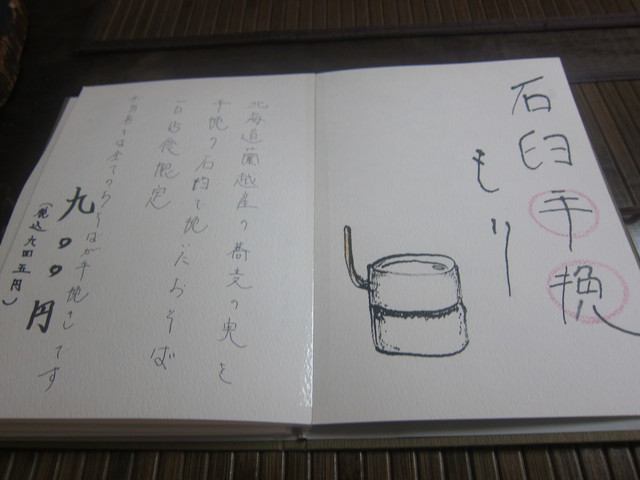 石臼手挽
もり
北海道蘭越産の蕎麦の実を
手挽の石臼で挽いたおそば
食限定
は全てのおそばが手挽きです
九〇〇円
(税込九四五円)